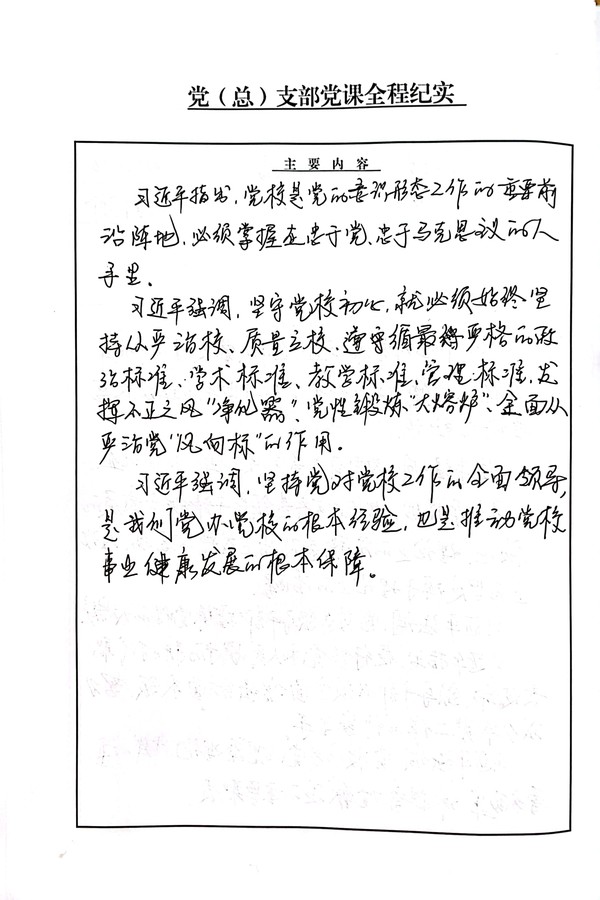 党（总）支部党课全程纪实
主要内容
习近平指出，党校是党的意识形态工作的重要前
沿阵地，必须掌握在忠于党、忠于马克思主义的人
手里。
习近平强调，坚守党校初心，就必须始终坚
持从严治校、质量立校、遵守循最严格的政
治标准、学术标准、教学标准、管理标准，发
挥不正之风“净化器”、党性锻炼“大熔炉”、全面从
严治党“风向标”的作用。
习近平强调，坚持党对党校工作的全面领导，
是我们党办党校的根本经验，也是推动党校
事业健康发展的根本保障。